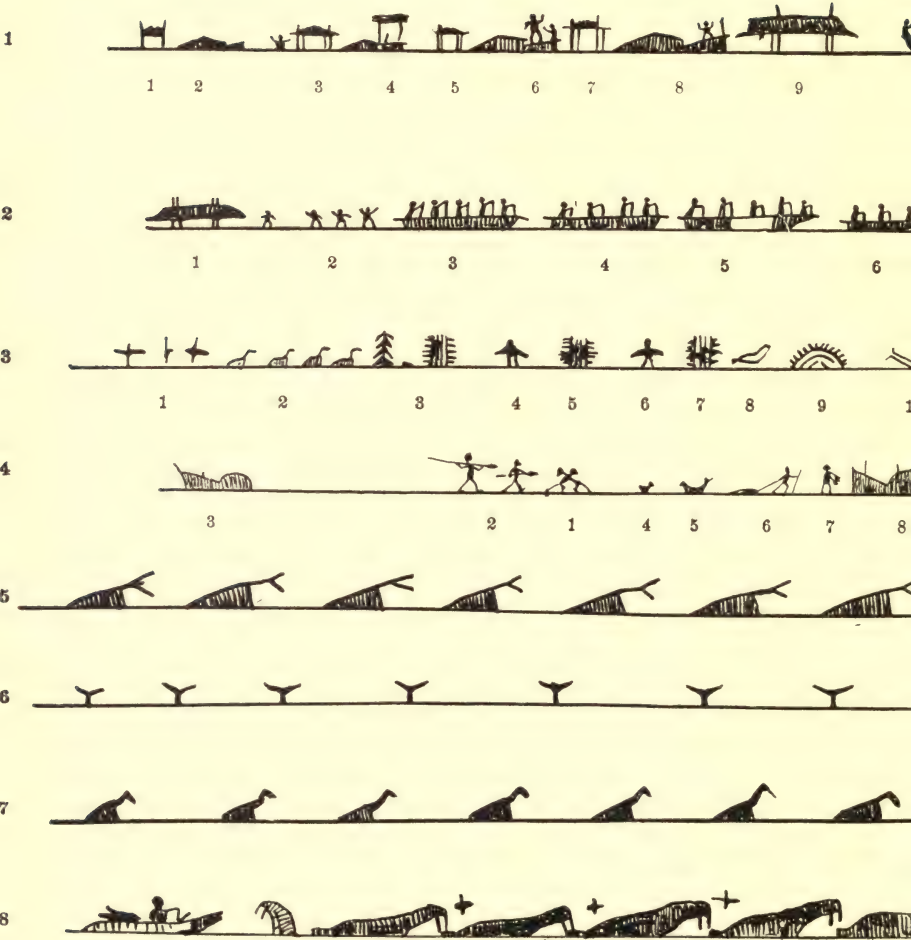 1
1 2 3 4 5 6 7 8 9
2
1 2 3 4 5 6
3
1 2 3 4 5 6 7 8 9 1
4
3 2 1 4 5 6 7 8
5
6
7
8